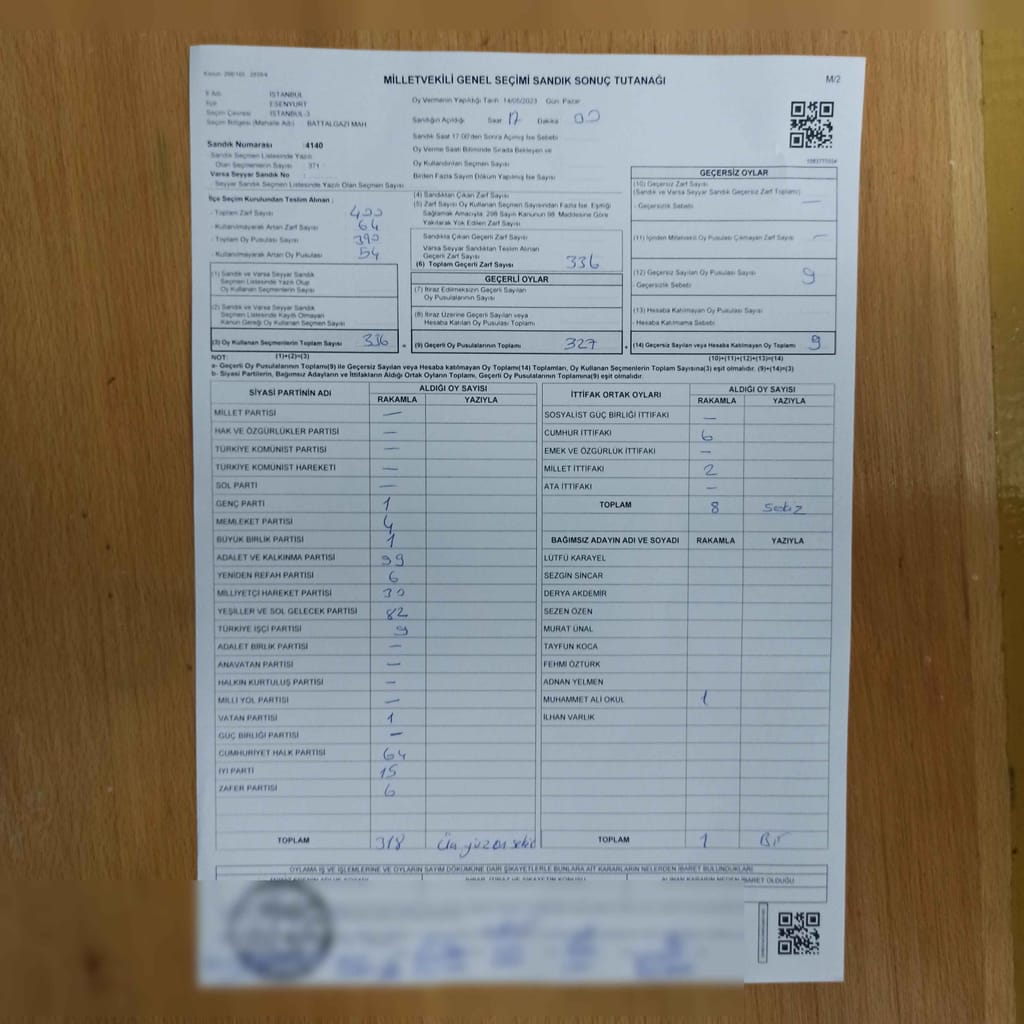 MİLLETVEKİLİ GENEL SEÇİMİ SANDIK SONUÇ TUTANAĞI
M/2
İl Adı : İSTANBUL
İlçe : ESENYURT
Seçim Çevresi : İSTANBUL-3
Seçim Bölgesi (Mahalle Adı) : BATTALGAZİ MAH
Oy Vermenin Yapıldığı Tarih 14/05/2023 Gün Pazar
Sandığın Açıldığı Saat 17 Dakika 00
Sandık Saat 17:00'den Sonra Açılmış İse Sebebi
Oy Verme Saati Bitiminde Sırada Bekleyen ve
Oy Kullandırılan Seçmen Sayısı
Birden Fazla Sayım Döküm Yapılmış İse Sayısı
Sandık Numarası :4140
Sandık Seçmen Listesinde Yazılı
Olan Seçmenlerin Sayısı : 371
Varsa Seyyar Sandık No
Seyyar Sandık Seçmen Listesinde Yazılı Olan Seçmen Sayısı
İlçe Seçim Kurulundan Teslim Alınan ;
- Toplam Zarf Sayısı 400
- Kullanılmayarak Artan Zarf Sayısı 64
- Toplam Oy Pusulası Sayısı 390
- Kullanılmayarak Artan Oy Pusulası 54
(1) Sandık ve Varsa Seyyar Sandık
Seçmen Listesinde Yazılı Olup
Oy Kullanan Seçmenlerin Sayısı
(2) Sandık ve Varsa Seyyar Sandık
Seçmen Listesinde Kayıtlı Olmayan
Kanun Gereği Oy Kullanan Seçmen Sayısı
(3) Oy Kullanan Seçmenlerin Toplam Sayısı 336
(1)+(2)=(3)
(4) Sandıktan Çıkan Zarf Sayısı
(5) Zarf Sayısı Oy Kullanan Seçmen Sayısından Fazla İse, Eşitliği
Sağlamak Amacıyla, 298 Sayılı Kanunun 98. Maddesine Göre
Yakılarak Yok Edilen Zarf Sayısı
Sandıkta Çıkan Geçerli Zarf Sayısı
Varsa Seyyar Sandıktan Teslim Alınan
Geçerli Zarf Sayısı
(6) Toplam Geçerli Zarf Sayısı 336
GEÇERLİ OYLAR
(7) İtiraz Edilmeksizin Geçerli Sayılan
Oy Pusulalarının Sayısı
(8) İtiraz Üzerine Geçerli Sayılan veya
Hesaba Katılan Oy Pusulası Toplamı
= (9) Geçerli Oy Pusulalarının Toplamı 327
GEÇERSİZ OYLAR
(10) Geçersiz Zarf Sayısı
(Sandık ve Varsa Seyyar Sandık Geçersiz Zarf Toplamı)
- Geçersizlik Sebebi —
(11) İçinden Milletvekili Oy Pusulası Çıkmayan Zarf Sayısı —
(12) Geçersiz Sayılan Oy Pusulası Sayısı 9
- Geçersizlik Sebebi
(13) Hesaba Katılmayan Oy Pusulası Sayısı
- Hesaba Katılmama Sebebi
+ (14) Geçersiz Sayılan veya Hesaba Katılmayan Oy Toplamı 9
(10)+(11)+(12)+(13)=(14)
NOT:
a- Geçerli Oy Pusulalarının Toplamı(9) ile Geçersiz Sayılan veya Hesaba katılmayan Oy Toplamı(14) Toplamları, Oy Kullanan Seçmenlerin Toplam Sayısına(3) eşit olmalıdır. (9)+(14)=(3)
b- Siyasi Partilerin, Bağımsız Adayların ve İttifakların Aldığı Ortak Oyların Toplamı, Geçerli Oy Pusulalarının Toplamına(9) eşit olmalıdır.
SİYASİ PARTİNİN ADI ALDIĞI OY SAYISI
RAKAMLA YAZIYLA
MİLLET PARTİSİ —
HAK VE ÖZGÜRLÜKLER PARTİSİ —
TÜRKİYE KOMÜNİST PARTİSİ —
TÜRKİYE KOMÜNİST HAREKETİ —
SOL PARTİ —
GENÇ PARTİ 1
MEMLEKET PARTİSİ 4
BÜYÜK BİRLİK PARTİSİ 1
ADALET VE KALKINMA PARTİSİ 99
YENİDEN REFAH PARTİSİ 6
MİLLİYETÇİ HAREKET PARTİSİ 30
YEŞİLLER VE SOL GELECEK PARTİSİ 82
TÜRKİYE İŞÇİ PARTİSİ 9
ADALET BİRLİK PARTİSİ —
ANAVATAN PARTİSİ —
HALKIN KURTULUŞ PARTİSİ —
MİLLİ YOL PARTİSİ —
VATAN PARTİSİ 1
GÜÇ BİRLİĞİ PARTİSİ —
CUMHURİYET HALK PARTİSİ 64
İYİ PARTİ 15
ZAFER PARTİSİ 6
TOPLAM 318 Üç yüz on sekiz
İTTİFAK ORTAK OYLARI ALDIĞI OY SAYISI
RAKAMLA YAZIYLA
SOSYALİST GÜÇ BİRLİĞİ İTTİFAKI —
CUMHUR İTTİFAKI 6
EMEK VE ÖZGÜRLÜK İTTİFAKI —
MİLLET İTTİFAKI 2
ATA İTTİFAKI —
TOPLAM 8 Sekiz
BAĞIMSIZ ADAYIN ADI VE SOYADI RAKAMLA YAZIYLA
LÜTFÜ KARAYEL
SEZGİN SİNCAR
DERYA AKDEMİR
SEZEN ÖZEN
MURAT ÜNAL
TAYFUN KOCA
FEHMİ ÖZTÜRK
ADNAN YELMEN
MUHAMMET ALİ OKUL 1
İLHAN VARLIK
TOPLAM 1 Bir
OYLAMA İŞ VE İŞLEMLERİNE VE OYLARIN SAYIM DÖKÜMÜNE DAİR ŞİKAYETLERLE BUNLARA AİT KARARLARIN NELERDEN İBARET BULUNDUKLARI